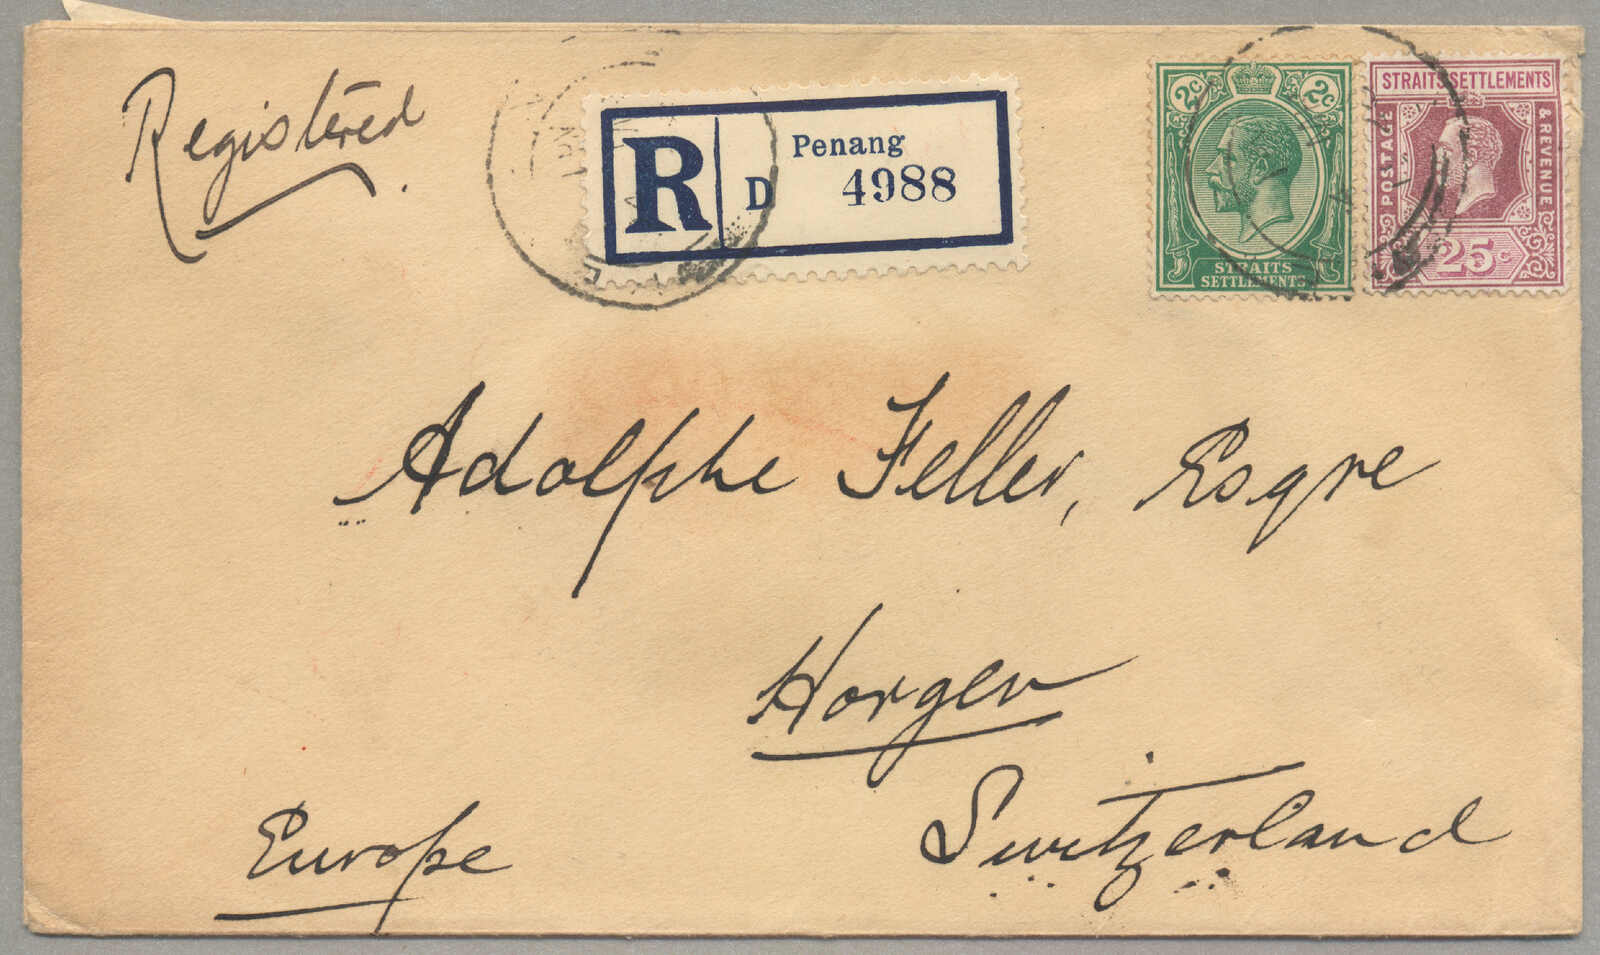 Registered
R D Penang 4988
2c 2c
STRAITS SETTLEMENTS
STRAITS SETTLEMENTS
POSTAGE & REVENUE
25c
Adolphe Feller, Esqre
Horgen
Switzerland
Europe